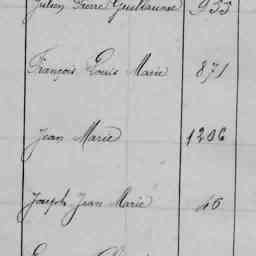 Julien Pierre Guillaume 933
François Louis Marie 871
Jean Marie 1206
Joseph Jean Marie 46